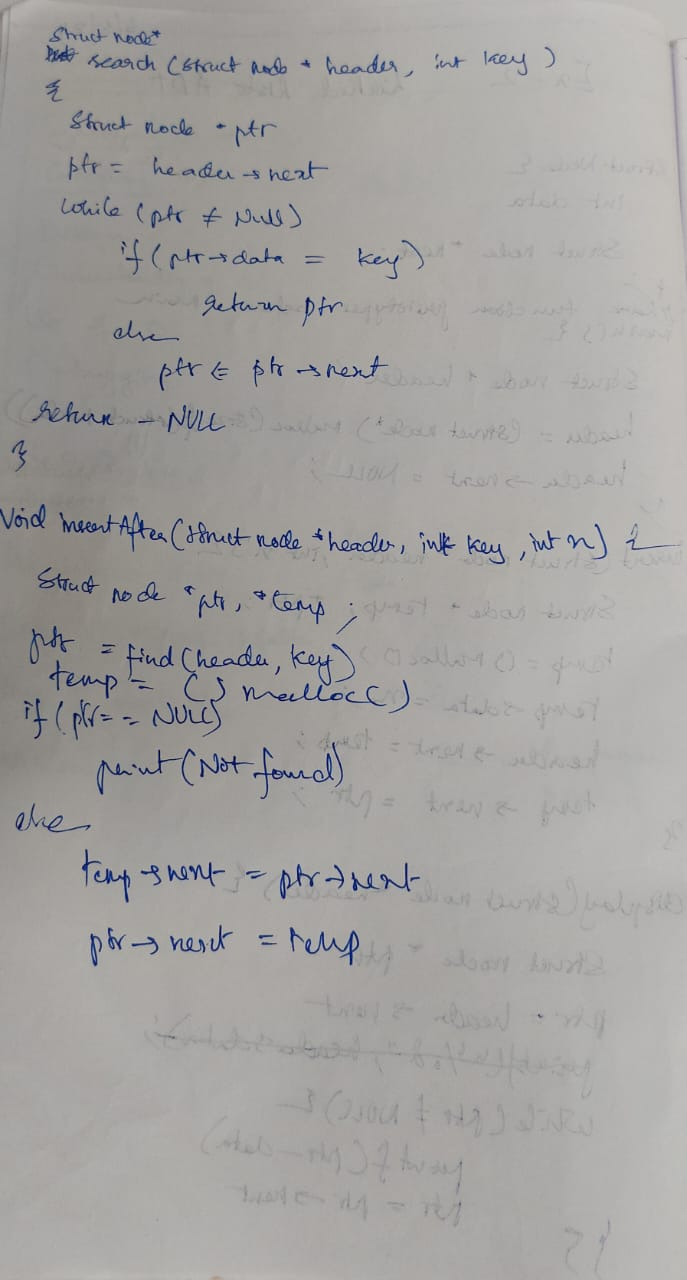 Struct node*
search (struct node * header, int key )
{
Struct node * ptr
ptr = header → next
while (ptr ≠ Null)
if (ptr → data = key)
return ptr
else
ptr = ptr → next
return - NULL
}
Void insertAfter (struct node *header, int key, int n) {
Struct node *ptr, *temp ;
ptr = find (header, key)
temp = ( ) malloc( )
if (ptr == NULL)
print (Not found)
else
temp → next = ptr → next
ptr → next = temp